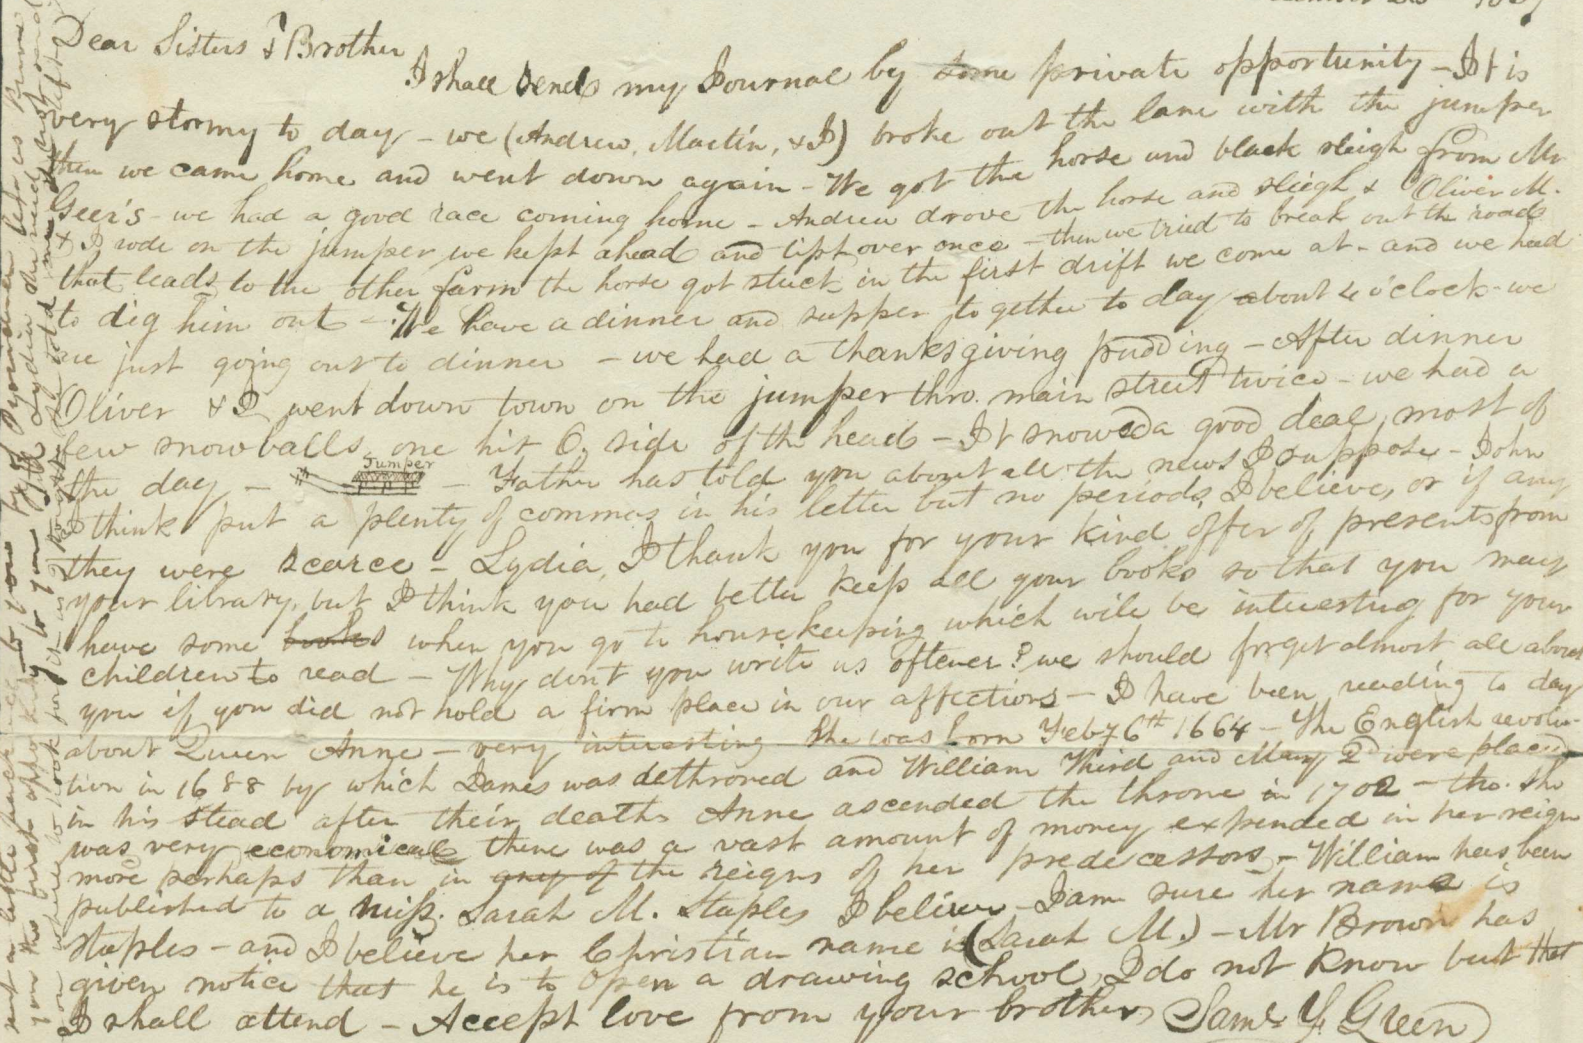 Dear Sisters & Brother
I shall send my Journal by some private opportunity – It is
very stormy to day – we (Andrew, Martin, & I) broke out the lane with the jumper
then we came home and went down again – We got the horse and black sleigh from Mr
Geer's – we had a good race coming home – Andrew drove the horse and sleigh & Oliver M.
& I rode on the jumper we kept ahead and tipt over once – then we tried to break out the road
that leads to the other farm the horse got stuck in the first drift we come at – and we had
to dig him out – We have a dinner and supper together to day about 4 o'clock – we
just going out to dinner – we had a thanksgiving pudding – After dinner
Oliver & I went down town on the jumper thro. main street twice – we had a
few snow balls, one hit O. side of the head – It snowed a good deal, most of
the day – Jumper – Father has told you about all the news I suppose – John
I think put a plenty of commas in his letter but no periods, I believe, or if any
they were scarce – Lydia, I thank you for your kind offer of presents from
your library, but I think you had better keep all your books so that you may
have some books when you go to housekeeping which will be interesting for your
children to read – Why don't you write us oftener? we should forget almost all about
you if you did not hold a firm place in our affections – I have been reading to day
about Queen Anne – very interesting She was born Feby 6th 1664 – The English revolu-
tion in 1688 by which James was dethroned and William Third and Mary 2d were placed
in his stead after their deaths Anne ascended the throne in 1702 – tho. she
was very economical there was a vast amount of money expended in her reign
more perhaps than in any of the reigns of her predecessors – William has been
published to a miss. Sarah M. Staples I believe – I am sure her name is
Staples – and I believe her Christian name is (Sarah M.) – Mr Brown has
given notice that he is to open a drawing school, I do not know but that
I shall attend – Accept love from your brother, Saml. Y. Green